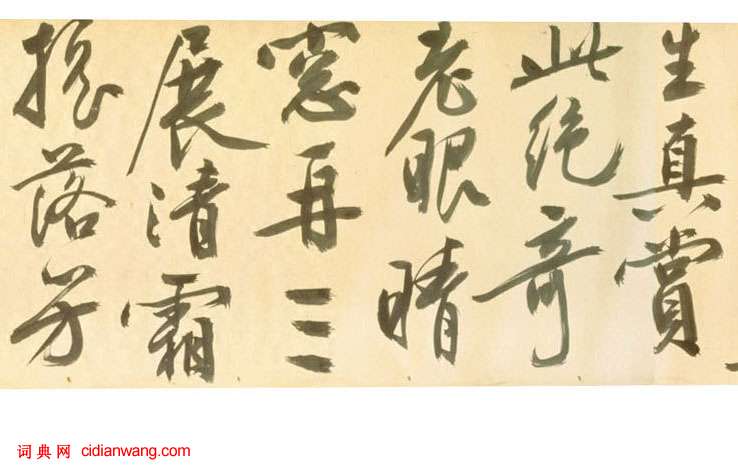 生真賞
此絶奇
老眼晴
窓再三
展清霜
搖落芳
词典网 cidianwang.com